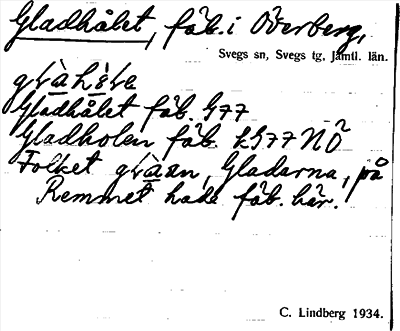 Gladhålet, fäb. i Överberg,
Svegs sn, Svegs tg, Jämtl. län.
Gladhålet fäb. G77
Gladholen fäb. LG77NÖ
Folket, Gladarna, på
Remmet hade fäb. här.
C. Lindberg 1934.